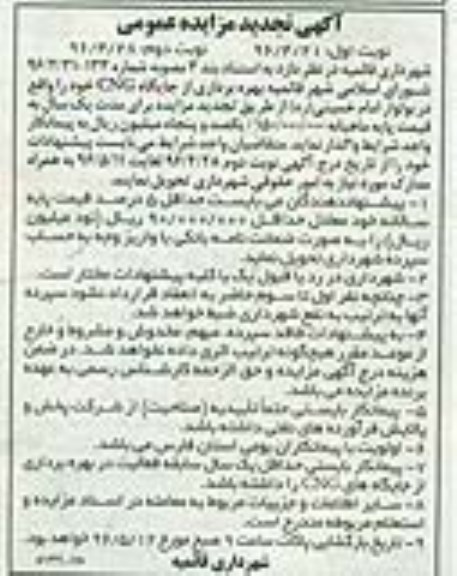 آگهی تجدید مزایده عمومی
نوبت اول: ۹۶/۴/۲۱ نوبت دوم: ۹۶/۴/۲۸
شهرداری قائمیه در نظر دارد به استناد بند ۴ مصوبه شماره ۱۳۳-۹۶/۲/۳۱
شورای اسلامی شهر قائمیه بهره برداری از جایگاه CNG خود را واقع
در بلوار امام خمینی (ره) از طریق تجدید مزایده برای مدت یک سال به
قیمت پایه ماهیانه یکصد و پنجاه میلیون ریال به پیمانکار
واجد شرایط واگذار نماید. متقاضیان واجد شرایط می بایست پیشنهادات
خود را از تاریخ درج آگهی نوبت دوم ۹۶/۴/۲۸ لغایت ۹۶/۵/۱۱ به همراه
مدارک مورد نیاز به امور حقوقی شهرداری تحویل نمایند.
۱- پیشنهاددهندگان می بایست حداقل ۵ درصد قیمت پایه
سالانه خود معادل حداقل ۹۰/۰۰۰/۰۰۰ ریال (نود میلیون
ریال) را به صورت ضمانت نامه بانکی یا واریز وجه به حساب
سپرده شهرداری تحویل نماید.
۲- شهرداری در رد یا قبول یک یا کلیه پیشنهادات مختار است.
۳- چنانچه نفر اول تا سوم حاضر به انعقاد قرارداد نشود سپرده
آنها به ترتیب به نفع شهرداری ضبط خواهد شد.
۴- به پیشنهادات فاقد سپرده، مبهم، مخدوش و مشروط و خارج
از موعد مقرر هیچگونه ترتیب اثری داده نخواهد شد. در ضمن
هزینه درج آگهی مزایده و حق الزحمه کارشناس رسمی به عهده
برنده مزایده می باشد.
۵- پیمانکار بایستی حتما تأییدیه (صلاحیت) از شرکت پخش و
پالایش فرآورده های نفتی داشته باشد.
۶- اولویت با پیمانکاران بومی استان فارس می باشد.
۷- پیمانکار بایستی حداقل یک سال سابقه فعالیت در بهره برداری
از جایگاه های CNG را داشته باشد.
۸- سایر اطلاعات و جزییات مربوط به معامله در اسناد مزایده و
استعلام مربوطه مندرج است.
۹- تاریخ بازگشایی پاکات ساعت ۹ صبح مورخ ۹۶/۵/۱۲ خواهد بود.
شهرداری قائمیه